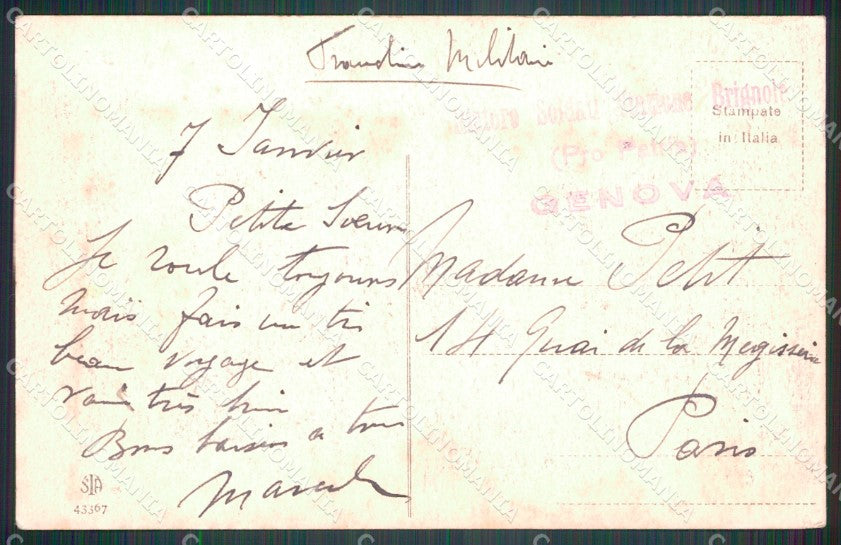 Franchise Militaire
7 Janvier
Petite Soeur
Je roule toujours
mais fais un très
beau voyage et
vais très bien
Bons baisers a tous
Marcel
Brignole
(Pro Patria)
GENOVA
Stampato
in Italia
Madame Petit
14 Quai de la Megisserie
Paris
SIA
43367
CARTOLINOMANIA